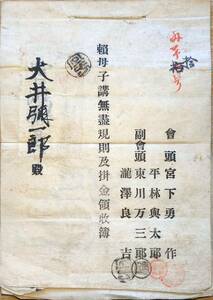 會頭 宮下勇作
副會頭 平林與太郎
東川万三郎
瀧澤良吉
賴母子講無盡規則及掛金領收簿
大井彌一郎殿